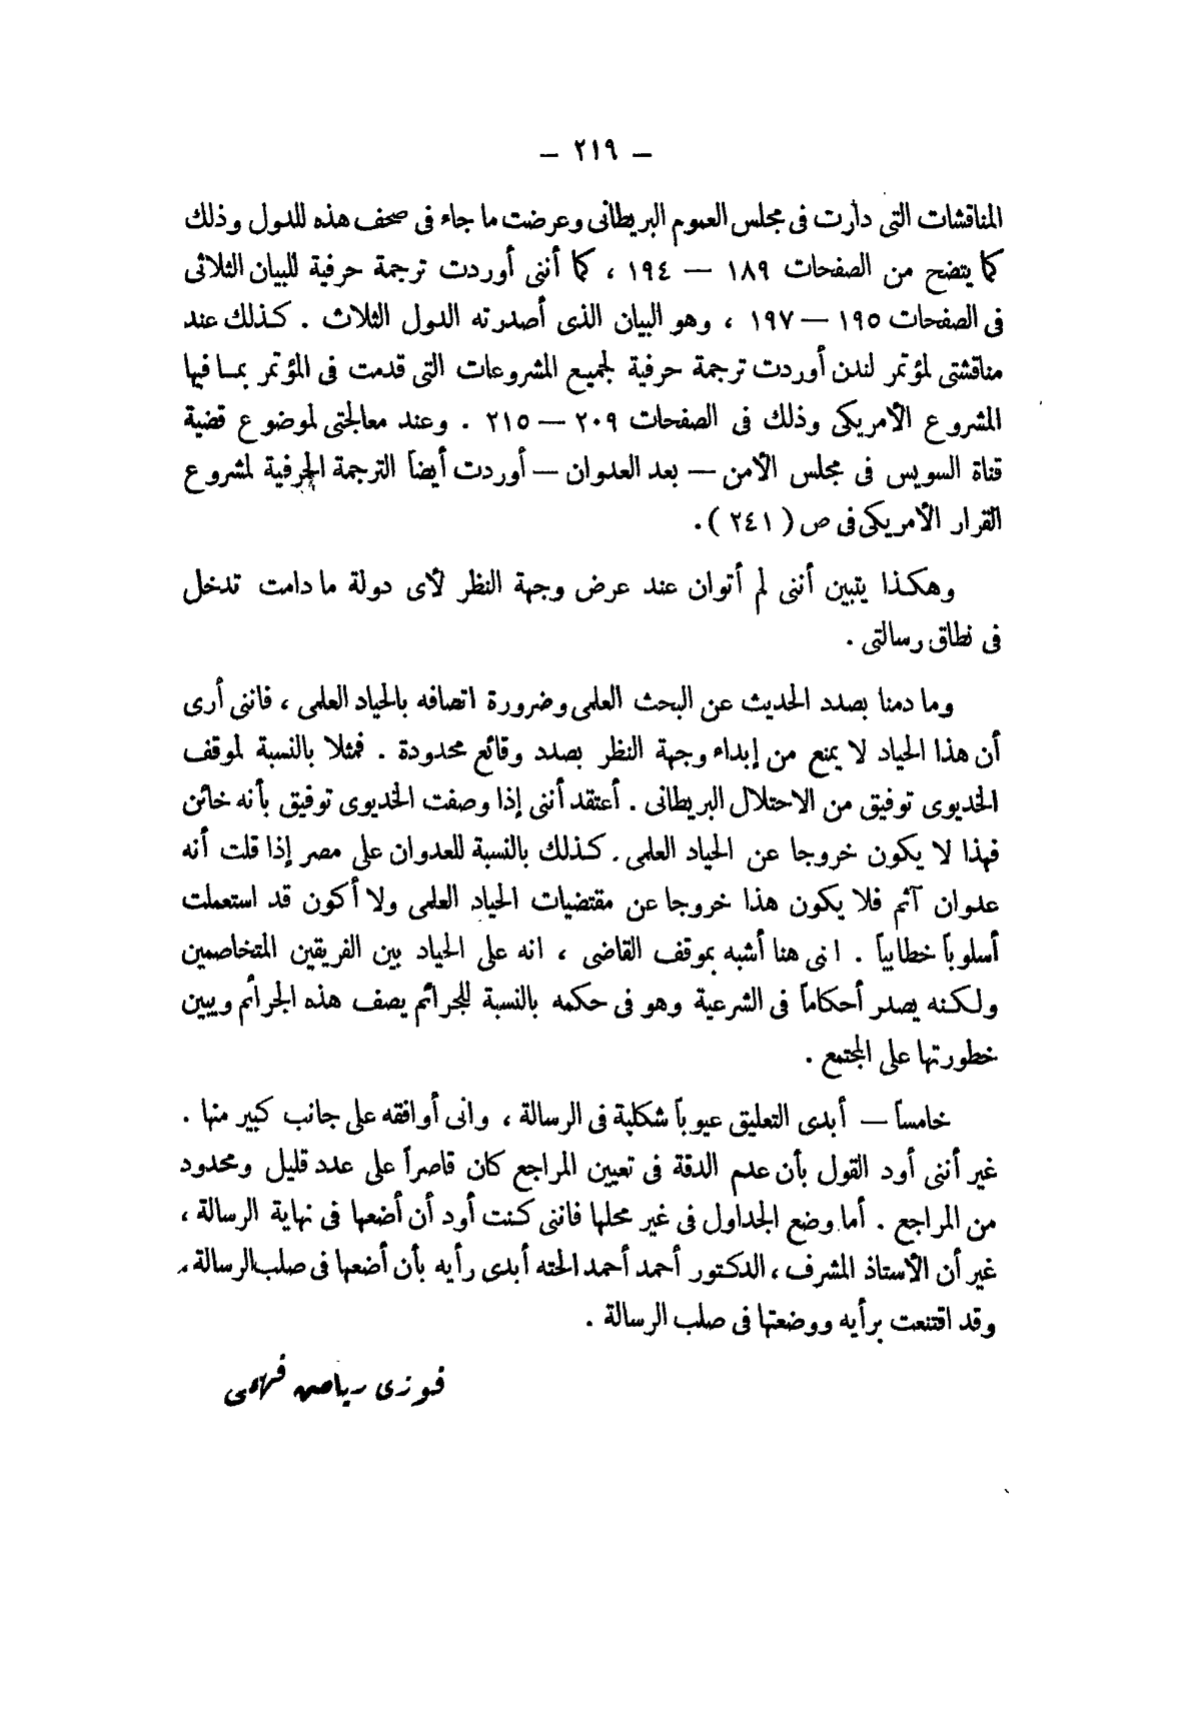 — ٢١٩ —
المناقشات التى دارت فى مجلس العموم البريطانى وعرضت ما جاء فى صحف هذه للدول وذلك
كما يتضح من الصفحات ١٨٩ — ١٩٤ ، كما أننى أوردت ترجمة حرفية للبيان الثلاثى
فى الصفحات ١٩٥ — ١٩٧ ، وهو البيان الذى أصدرته الدول الثلاث . كذلك عند
مناقشتى لمؤتمر لندن أوردت ترجمة حرفية لجميع المشروعات التى قدمت فى المؤتمر بما فيها
المشروع الأمريكى وذلك فى الصفحات ٢٠٩ — ٢١٥ . وعند معالجتى لموضوع قضية
قناة السويس فى مجلس الأمن — بعد العدوان — أوردت أيضاً الترجمة الحرفية لمشروع
القرار الأمريكى فى ص ( ٢٤١ ) .
وهكذا يتبين أننى لم أتوان عند عرض وجهة النظر لأى دولة ما دامت تدخل
فى نطاق رسالتى .
وما دمنا بصدد الحديث عن البحث العلمى وضرورة اتصافه بالحياد العلمى ، فاننى أرى
أن هذا الحياد لا يمنع من إبداء وجهة النظر بصدد وقائع محدودة . فمثلا بالنسبة لموقف
الخديوى توفيق من الاحتلال البريطانى . أعتقد أننى إذا وصفت الخديوى توفيق بأنه خائن
فهذا لا يكون خروجا عن الحياد العلمى . كذلك بالنسبة للعدوان على مصر إذا قلت أنه
عدوان آثم فلا يكون هذا خروجا عن مقتضيات الحياد العلمى ولا أكون قد استعملت
أسلوباً خطابياً . انى هنا أشبه بموقف القاضى ، انه على الحياد بين الفريقين المتخاصمين
ولكنه يصدر أحكاماً فى الشرعية وهو فى حكمه بالنسبة للجرائم يصف هذه الجرائم ويبين
خطورتها على المجتمع .
خامساً — أبدى التعليق عيوباً شكلية فى الرسالة ، وانى أوافقه على جانب كبير منها .
غير أننى أود القول بأن عدم الدقة فى تعيين المراجع كان قاصراً على عدد قليل ومحدود
من المراجع . أما وضع الجداول فى غير محلها فاننى كنت أود أن أضعها فى نهاية الرسالة ،
غير أن الأستاذ المشرف ، الدكتور أحمد أحمد الحته أبدى رأيه بأن أضعها فى صلب الرسالة .
وقد اقتنعت برأيه ووضعتها فى صلب الرسالة .
فوزى رياض فهمى